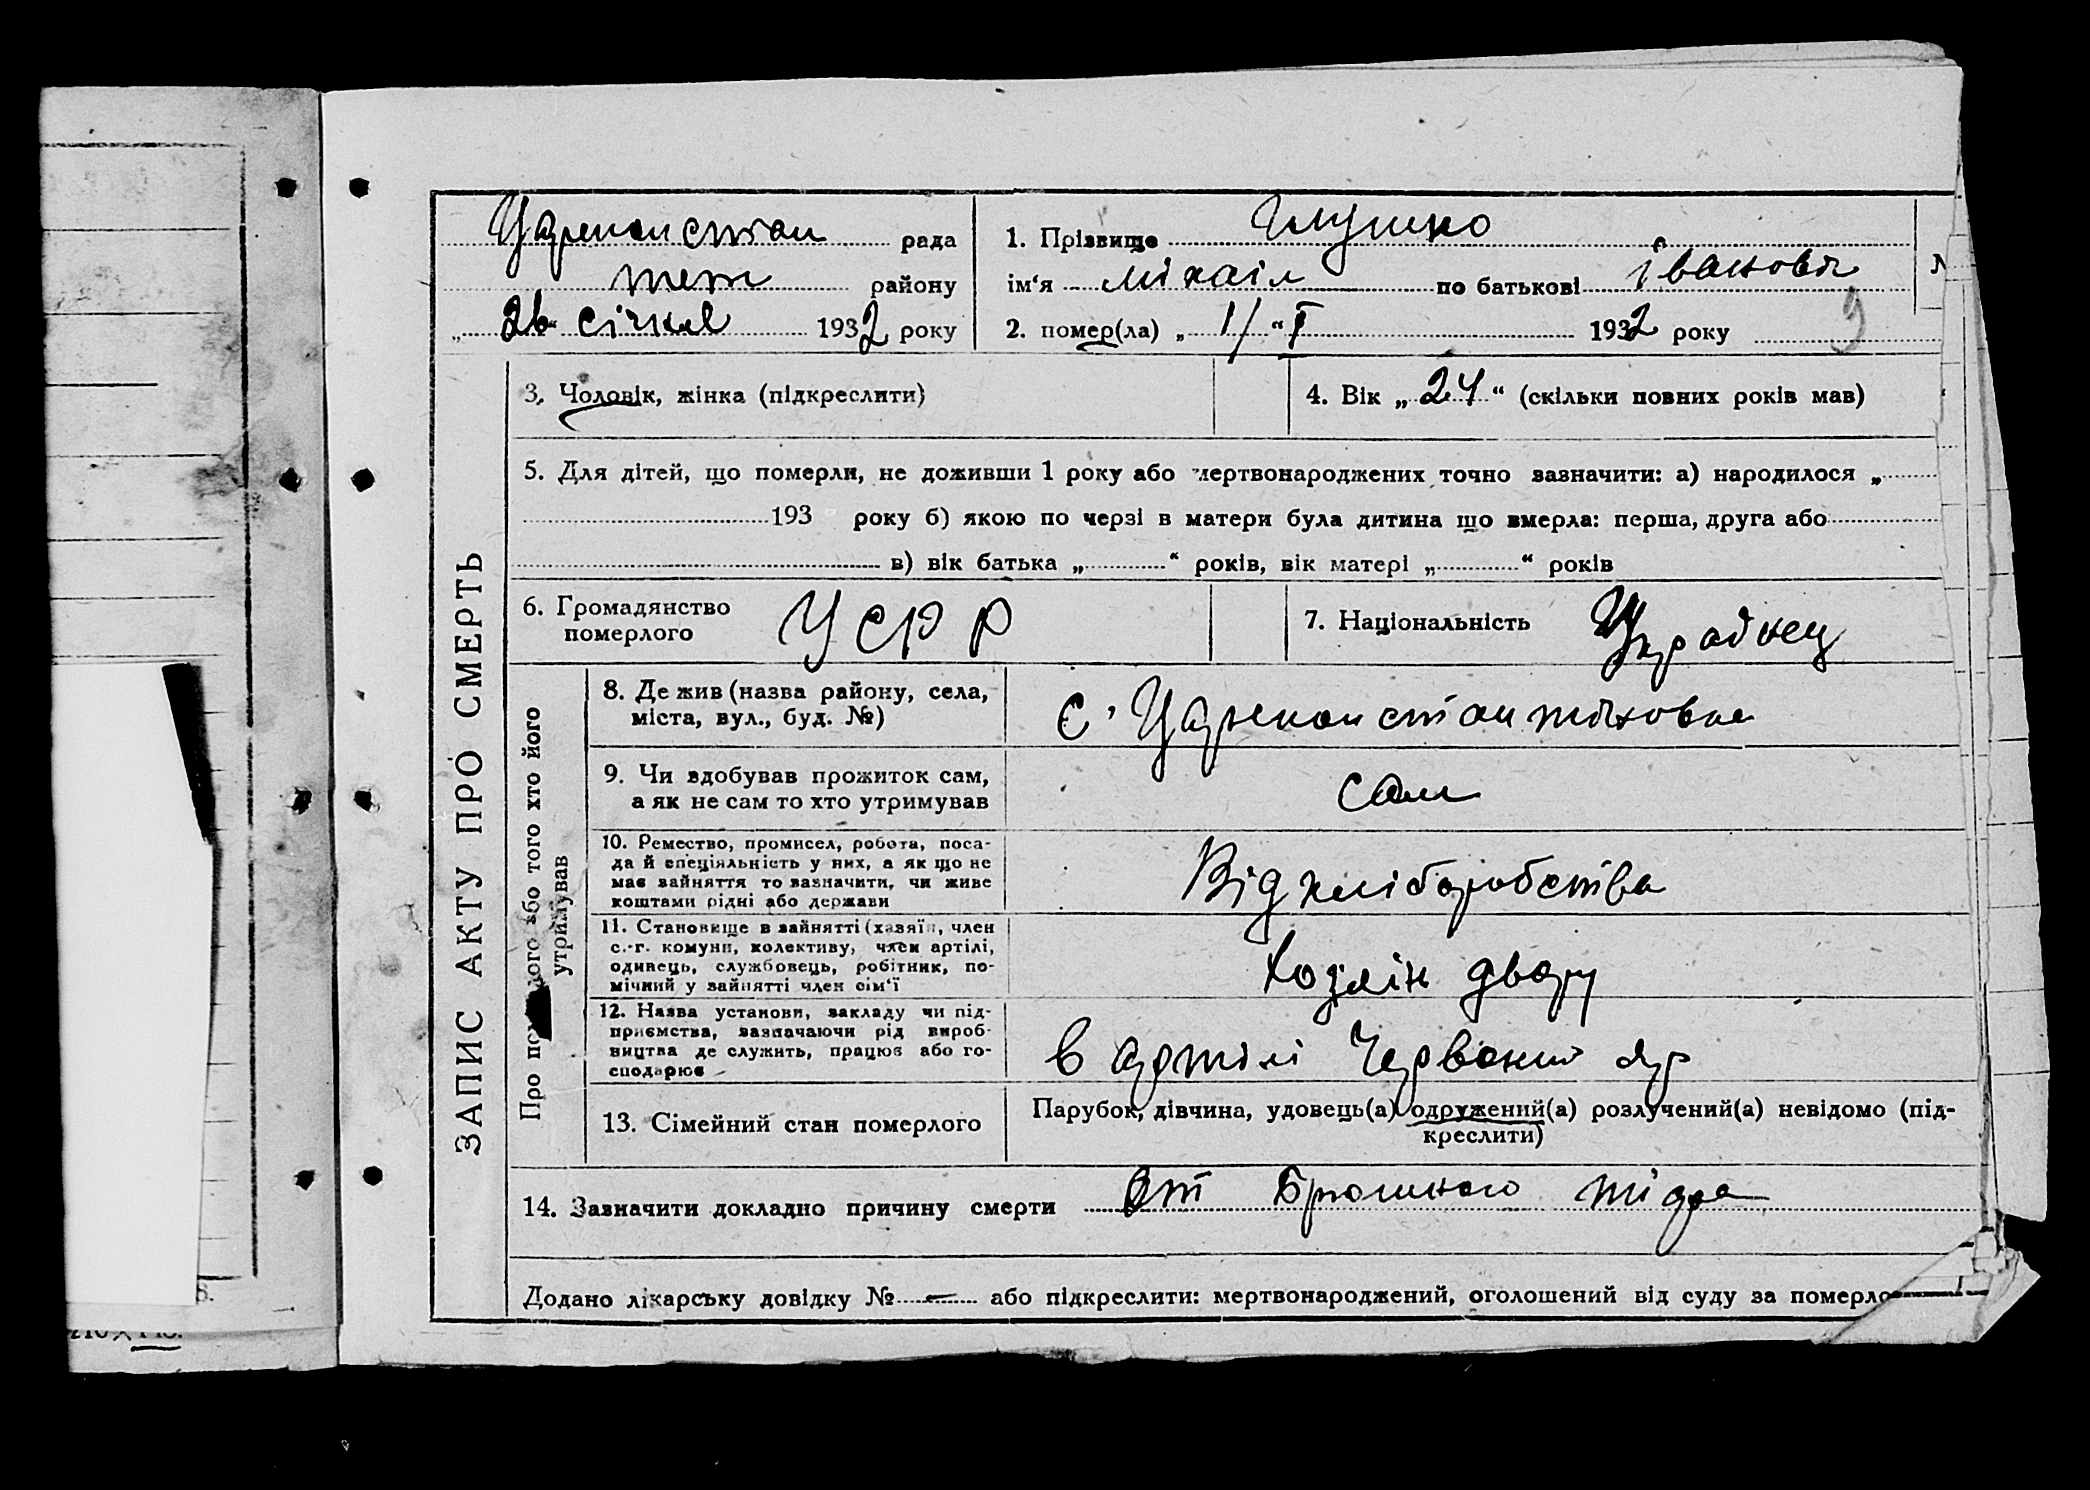 Цареконстан рада
району
„26“ січня 1932 року
1. Прізвище Глушко
ім‘я Міхаіл по батькові Іванович
2. помер(ла) „1/“ I 1932 року
9
ЗАПИС АКТУ ПРО СМЕРТЬ
3. Чоловік, жінка (підкреслити)
4. Вік „24“ (скільки повних років мав)
5. Для дітей, що померли, не доживши 1 року або мертвонароджених точно зазначити: а) народилося „
193 року б) якою по черзі в матери була дитина що вмерла: перша, друга або
в) вік батька „ “ років, вік матері „ “ років
6. Громадянство
померлого
УСРР
7. Національність Украінец
Про померлого або того хто його
утримував
8. Де жив (назва району, села,
міста, вул., буд. №)
с. Цареконстантіновка
9. Чи здобував прожиток сам,
а як не сам то хто утримував
сам
10. Ремество, промисел, робота, поса-
да й спеціяльність у них, а як що не
має зайняття то зазначити, чи живе
коштами рідні або держави
Від хліборобства
11. Становище в зайнятті (хазяїн, член
с.-г. комуни, колективу, член артілі,
одинець, службовець, робітник, по-
мічний у зайнятті член сім‘ї
Хозяін двору
12. Назва установи, закладу чи під-
приємства, зазначаючи рід вироб-
ництва де служить, працює або го-
сподарює
в артілі Червоний яр
13. Сімейний стан померлого
Парубок, дівчина, удовець(а) одружений(а) розлучений(а) невідомо (під-
креслити)
14. Зазначити докладно причину смерти От Брюшного тіфа
Додано лікарську довідку № — або підкреслити: мертвонароджений, оголошений від суду за померло